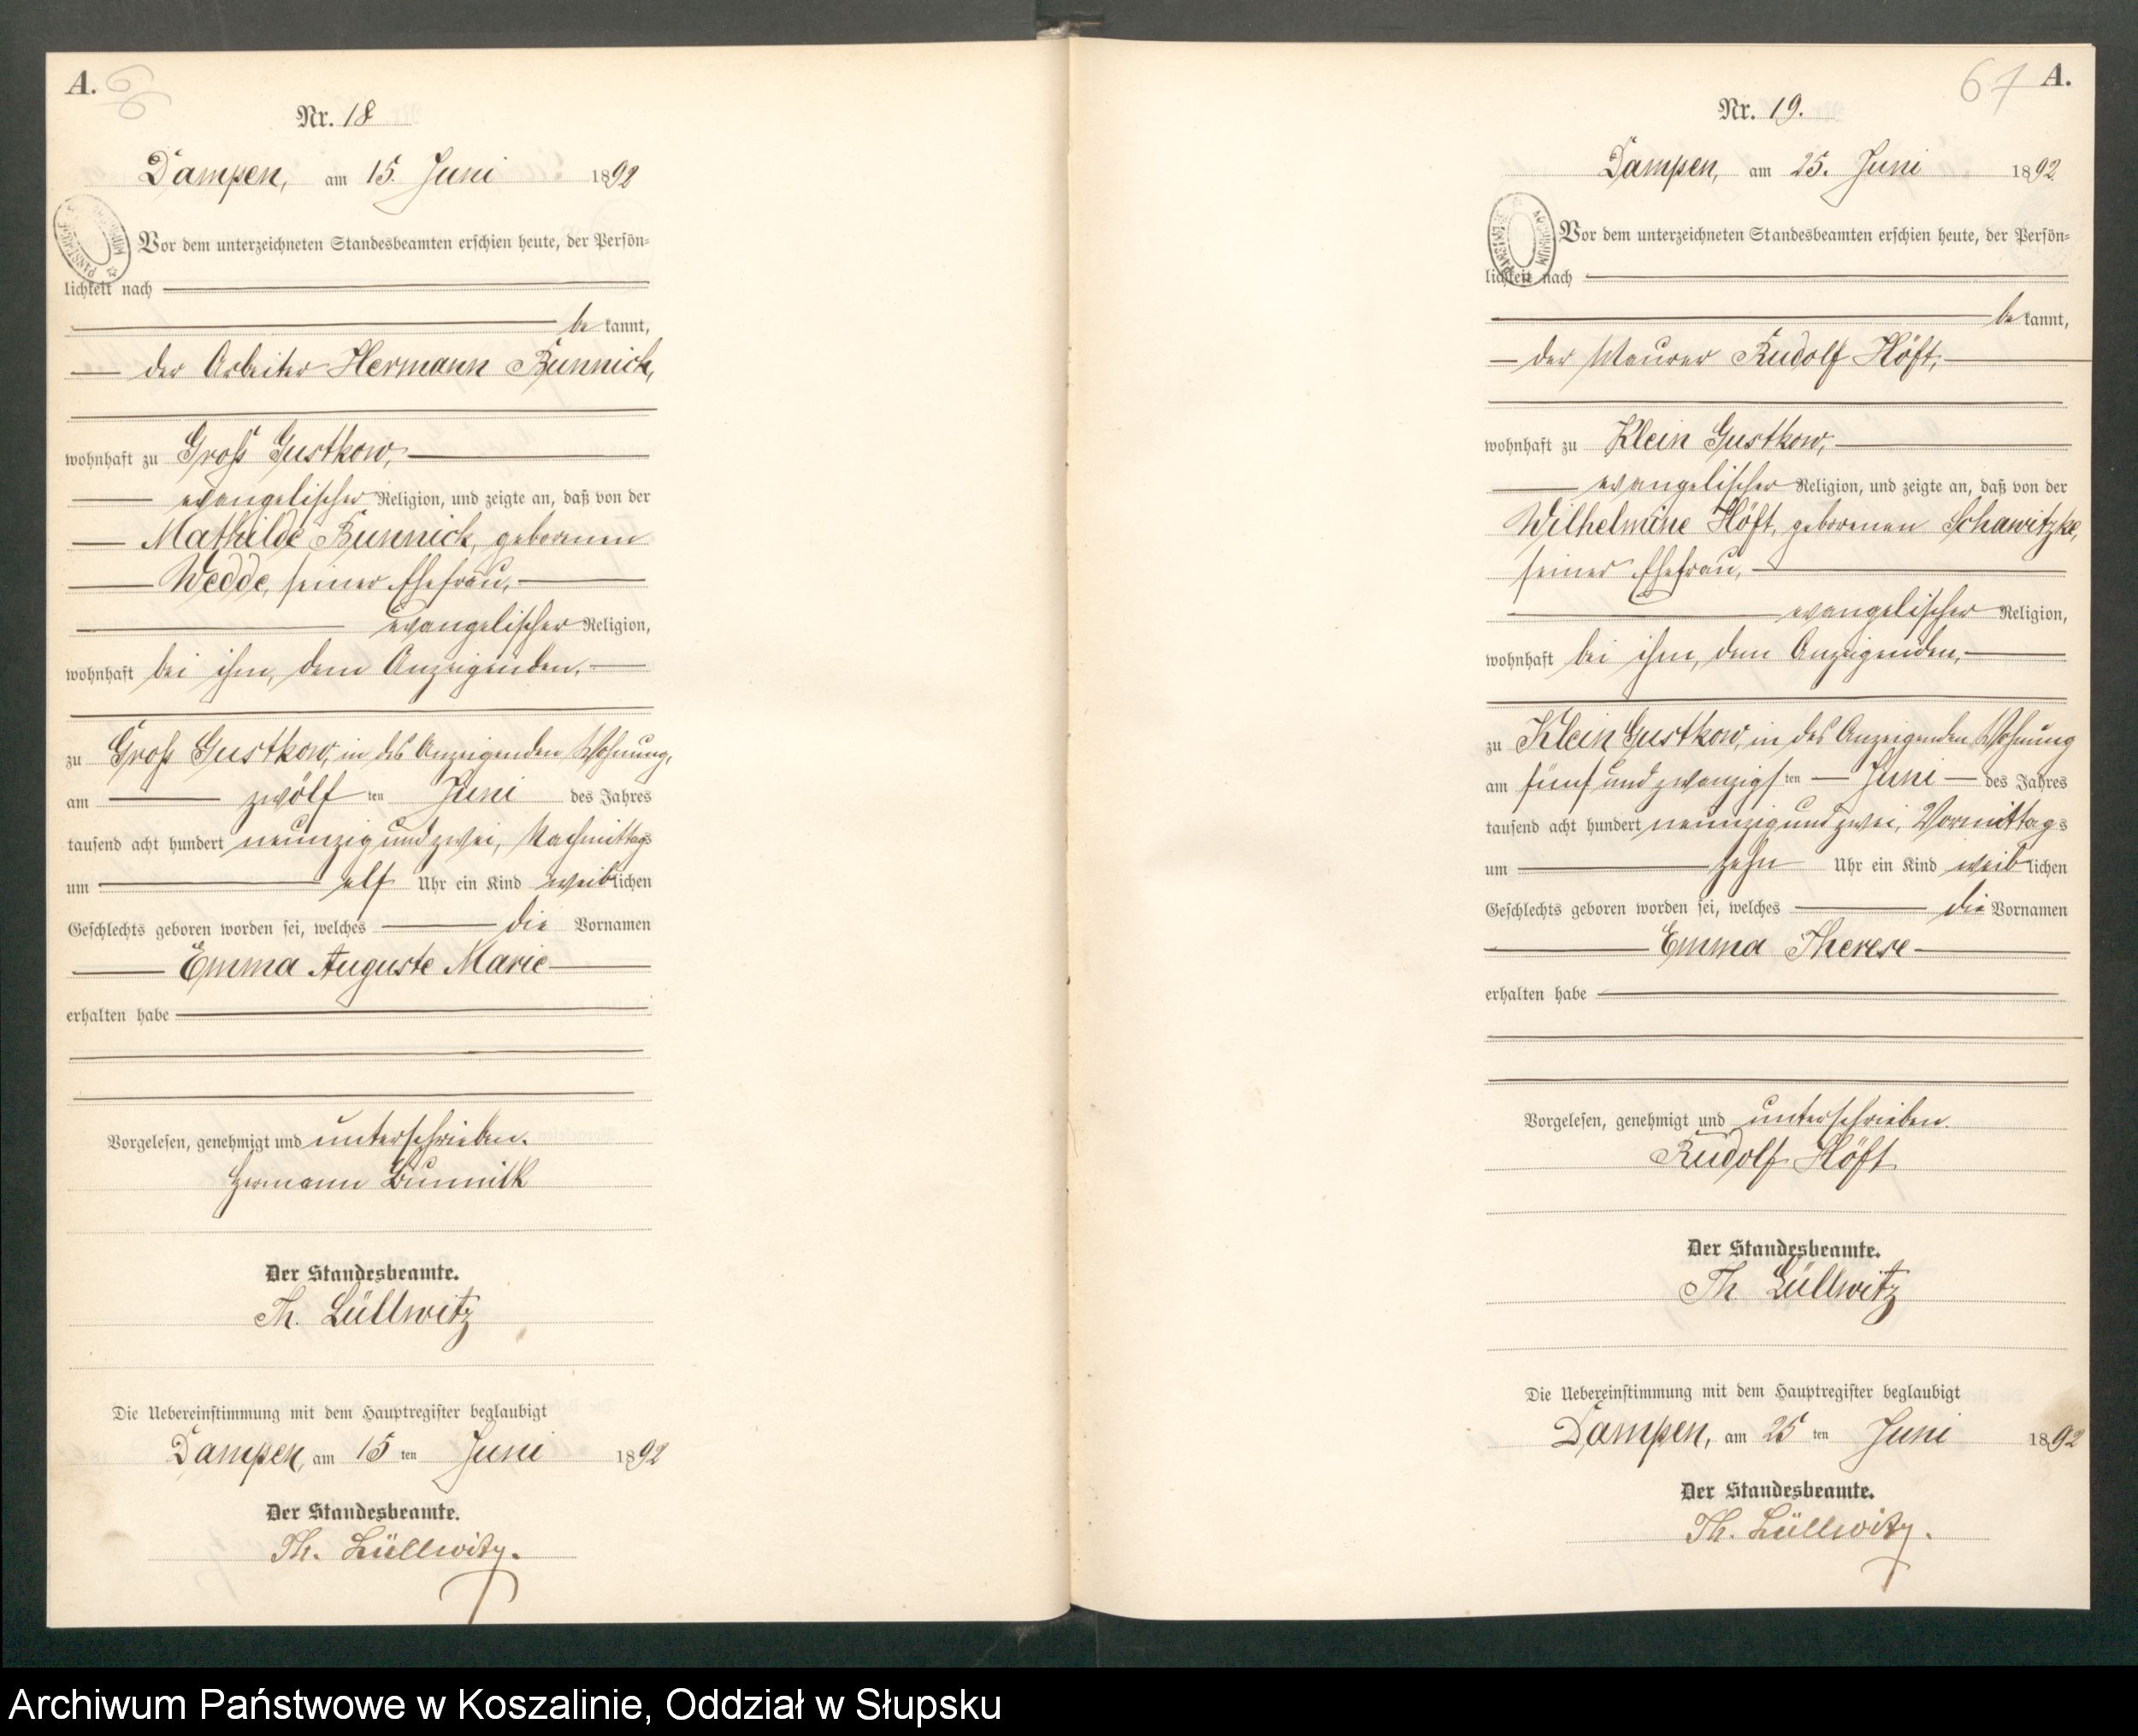 A. 66
Nr. 18
Dampen, am 15. Juni 1892
Vor dem unterzeichneten Standesbeamten erschien heute, der Persön=
lichkeit nach
be kannt,
der Arbeiter Hermann Bunnick,
wohnhaft zu Groß Gustkow,
evangelischer Religion, und zeigte an, daß von der
Mathilde Bunnick, geborenen
Wedde, seiner Ehefrau,
evangelischer Religion,
wohnhaft bei ihm, dem Anzeigenden,
zu Groß Gustkow, in des Anzeigenden Wohnung,
am zwölf ten Juni des Jahres
tausend acht hundert neunzig und zwei, Nachmittags
um elf Uhr ein Kind weiblichen
Geschlechts geboren worden sei, welches die Vornamen
Emma Auguste Marie
erhalten habe
Vorgelesen, genehmigt und unterschrieben.
Hermann Bunnick
Der Standesbeamte.
Th. Lüllwitz
Die Uebereinstimmung mit dem Hauptregister beglaubigt
Dampen, am 15 ten Juni 1892
Der Standesbeamte.
Th. Lüllwitz.
67 A.
Nr. 19.
Dampen, am 25. Juni 1892
Vor dem unterzeichneten Standesbeamten erschien heute, der Persön=
lichkeit nach
be kannt,
der Maurer Rudolf Höft,
wohnhaft zu Klein Gustkow,
evangelischer Religion, und zeigte an, daß von der
Wilhelmine Höft, geborenen Schawitzke,
seiner Ehefrau,
evangelischer Religion,
wohnhaft bei ihm, dem Anzeigenden,
zu Klein Gustkow, in des Anzeigenden Wohnung
am fünf und zwanzigsten Juni des Jahres
tausend acht hundert neunzig und zwei, Vormittags
um zehn Uhr ein Kind weiblichen
Geschlechts geboren worden sei, welches die Vornamen
Emma Therese
erhalten habe
Vorgelesen, genehmigt und unterschrieben.
Rudolf Höft
Der Standesbeamte.
Th Lüllwitz
Die Uebereinstimmung mit dem Hauptregister beglaubigt
Dampen, am 25 ten Juni 1892
Der Standesbeamte.
Th. Lüllwitz.
Archiwum Państwowe w Koszalinie, Oddział w Słupsku